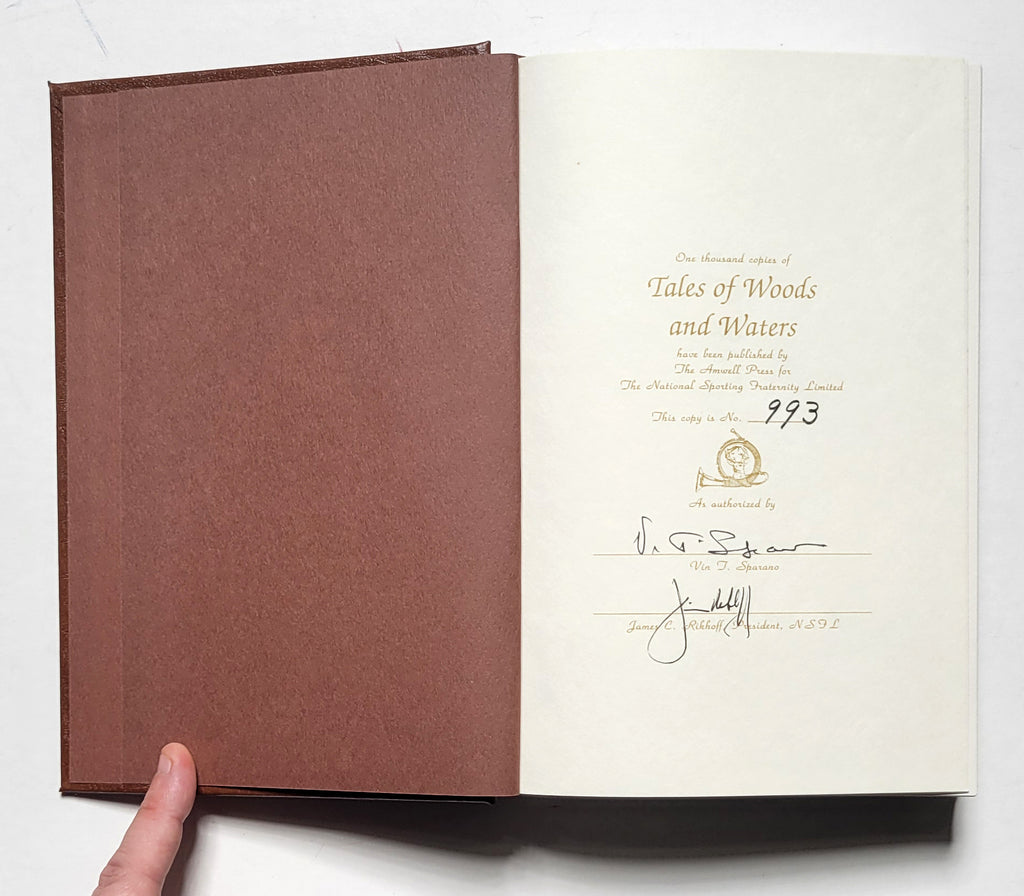 One thousand copies of
Tales of Woods
and Waters
have been published by
The Amwell Press for
The National Sporting Fraternity Limited
This copy is No. 993
As authorized by
Vin T. Sparano
Vin T. Sparano
James C. Rikhoff, President, NSFL